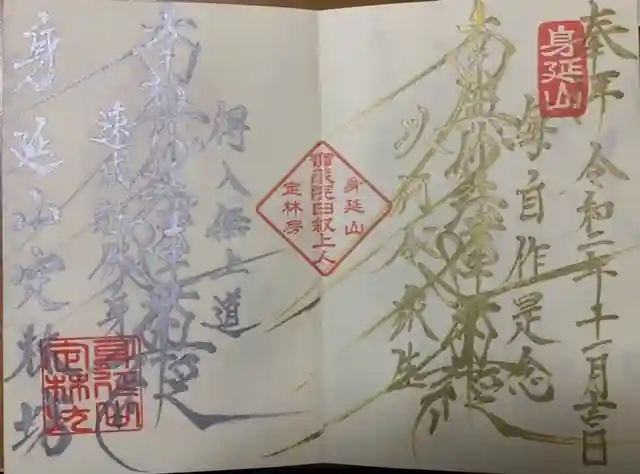 奉拝 令和二年十一月 日
身延山
毎自作是念
南無妙法蓮華経
以何令衆生
身延山
日叡上人
定林房
得入無上道
南無妙法蓮華経
速成就仏身
身延山定林坊
身延山
定林坊